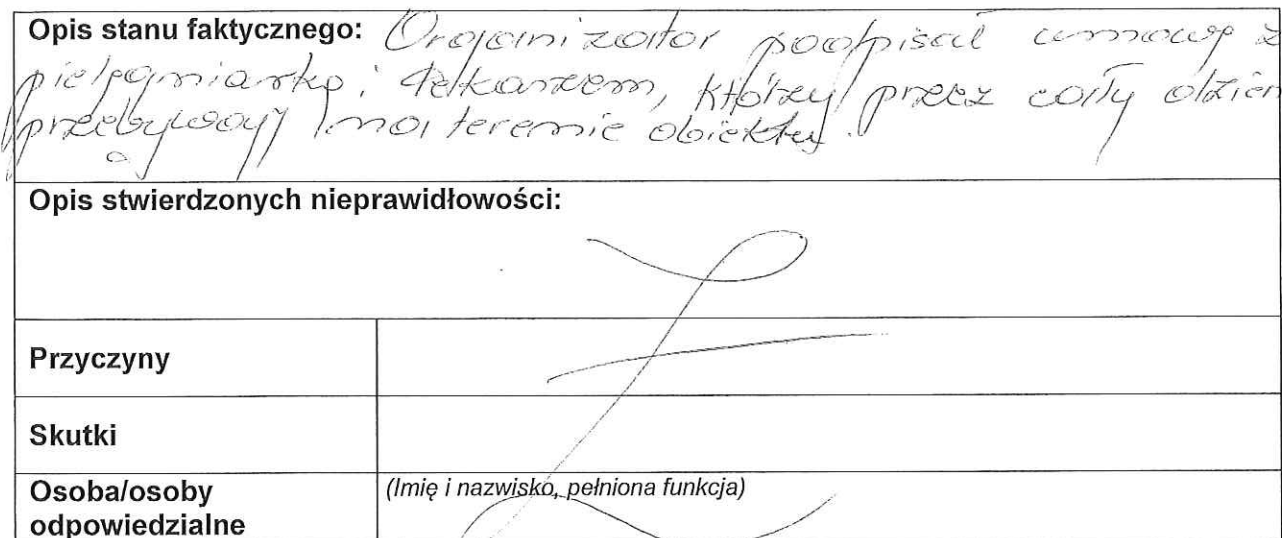 Opis stanu faktycznego: Organizator podpisał umowę z
pielęgniarką i lekarzem, którzy przez cały dzień
przebywają na terenie obiektu.
Opis stwierdzonych nieprawidłowości:
Przyczyny
Skutki
Osoba/osoby
odpowiedzialne
(Imię i nazwisko, pełniona funkcja)